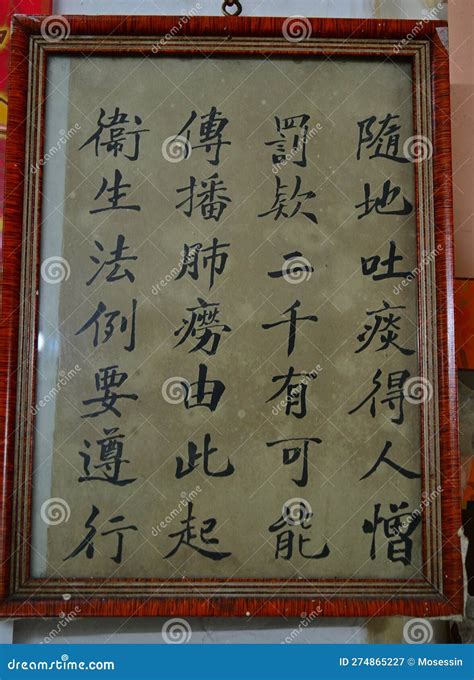 隨地吐痰得人憎
罰欵二千有可能
傳播肺癆由此起
衞生法例要遵行
dreamstime.com
ID 274865227 © Mosessin